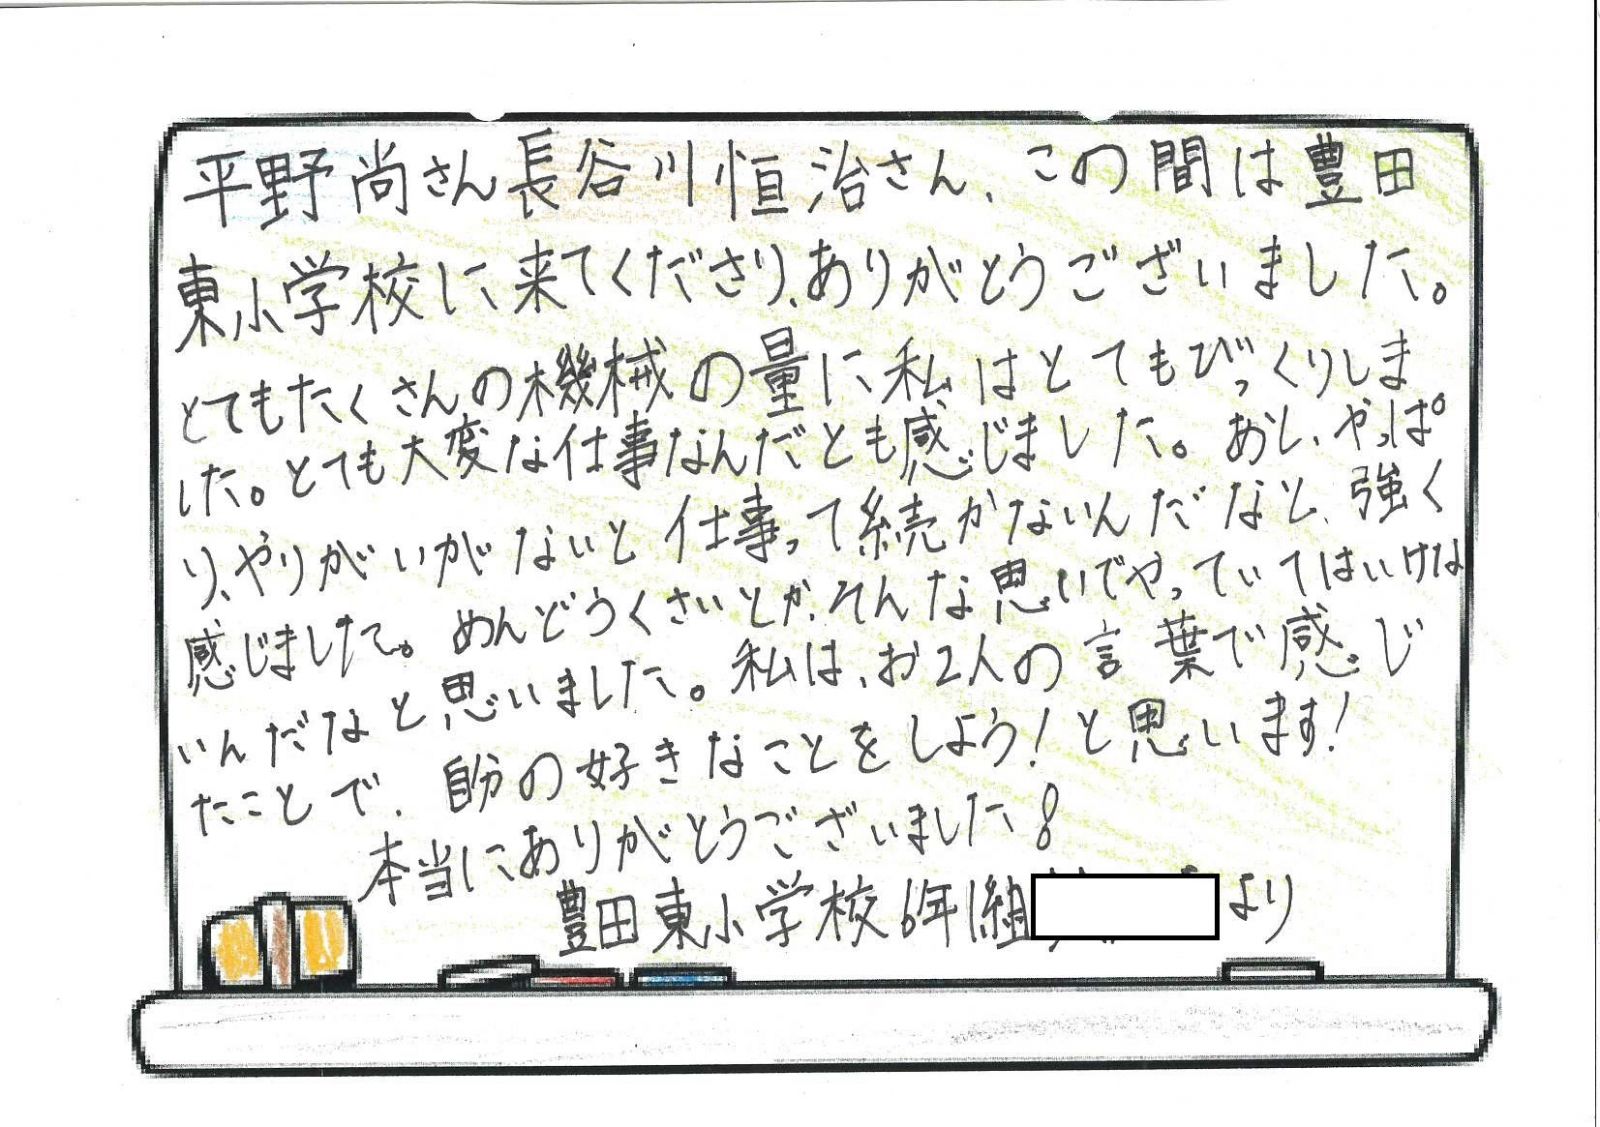 平野尚さん長谷川恒治さん、この間は豊田
東小学校に来てくださり、ありがとうございました。
とてもたくさんの機械の量に私はとてもびっくりしま
した。とても大変な仕事なんだとも感じました。あと、やっぱ
り、やりがいがないと仕事って続かないんだなと、強く
感じました。めんどうくさいとか、そんな思いでやっていてはいけな
いんだなと思いました。私は、お2人の言葉で感じ
たことで、自分の好きなことをしよう!と思います!
本当にありがとうございました!
豊田東小学校6年1組 より